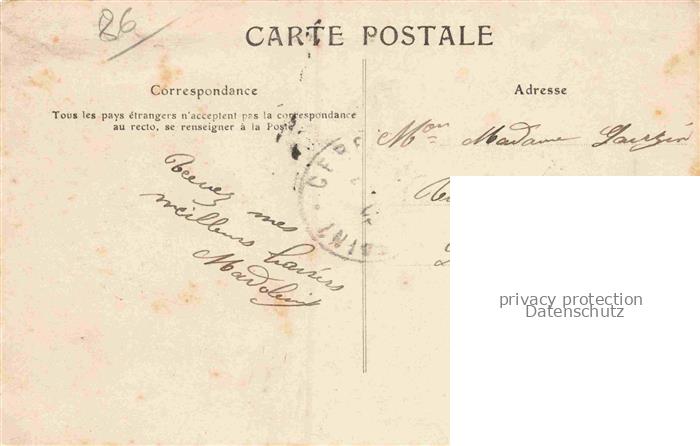 86
CARTE POSTALE
Correspondance
Tous les pays étrangers n'acceptent pas la correspondance
au recto, se renseigner à la Poste
Adresse
Recevez mes
meilleurs baisers
Mon Madame
privacy protection
Datenschutz